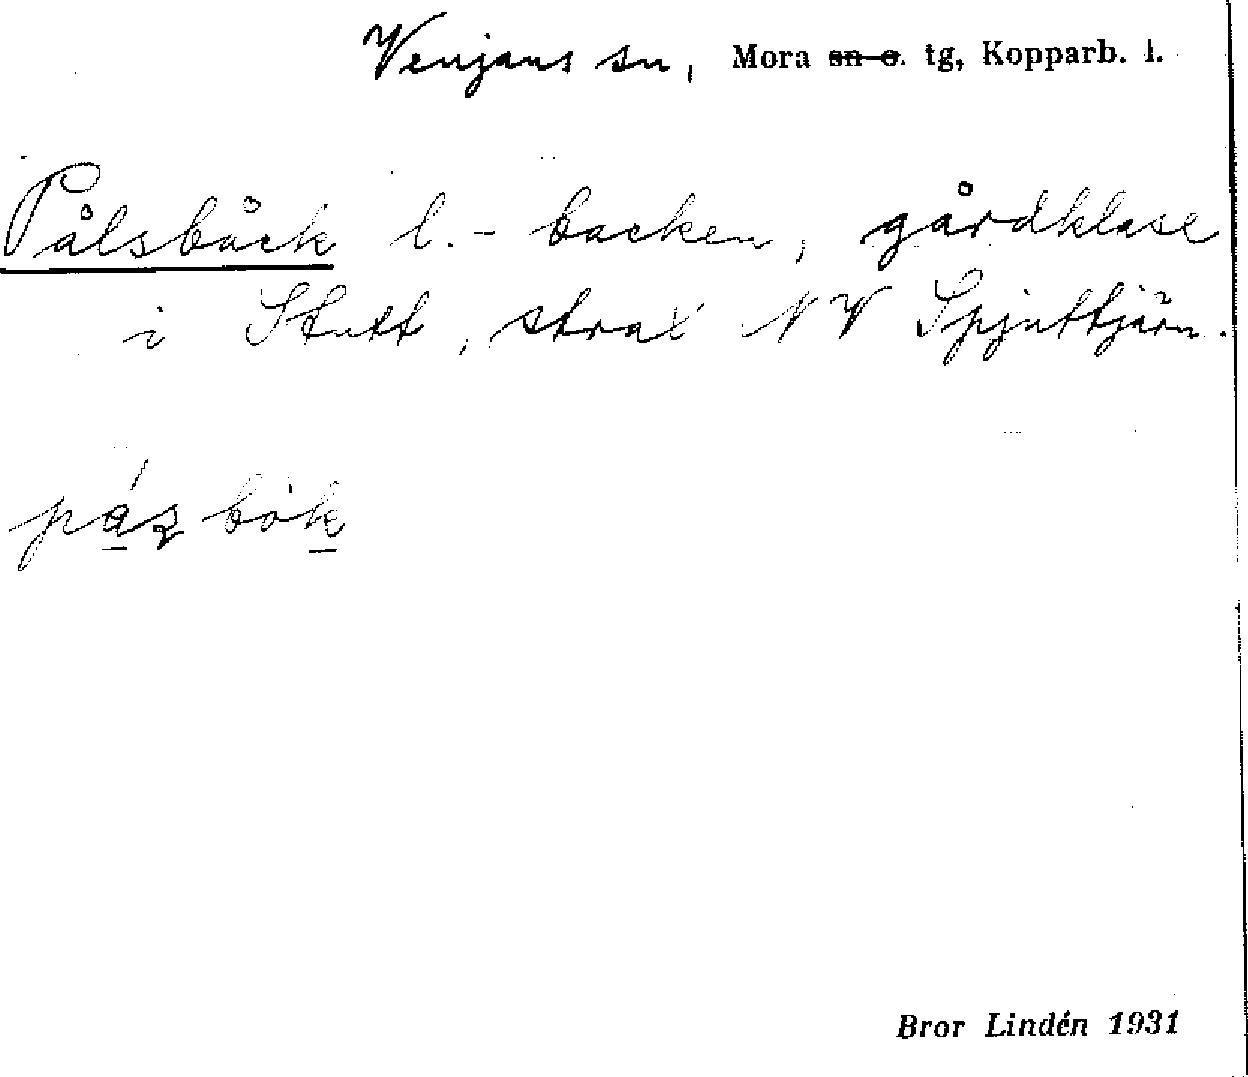 Venjans sn, Mora sn o. tg, Kopparb. l.
Pålsbåck l. - backen, gårdklase
i Stutt, strax NV Spjuttjärn.
pázbòk
Bror Lindén 1931